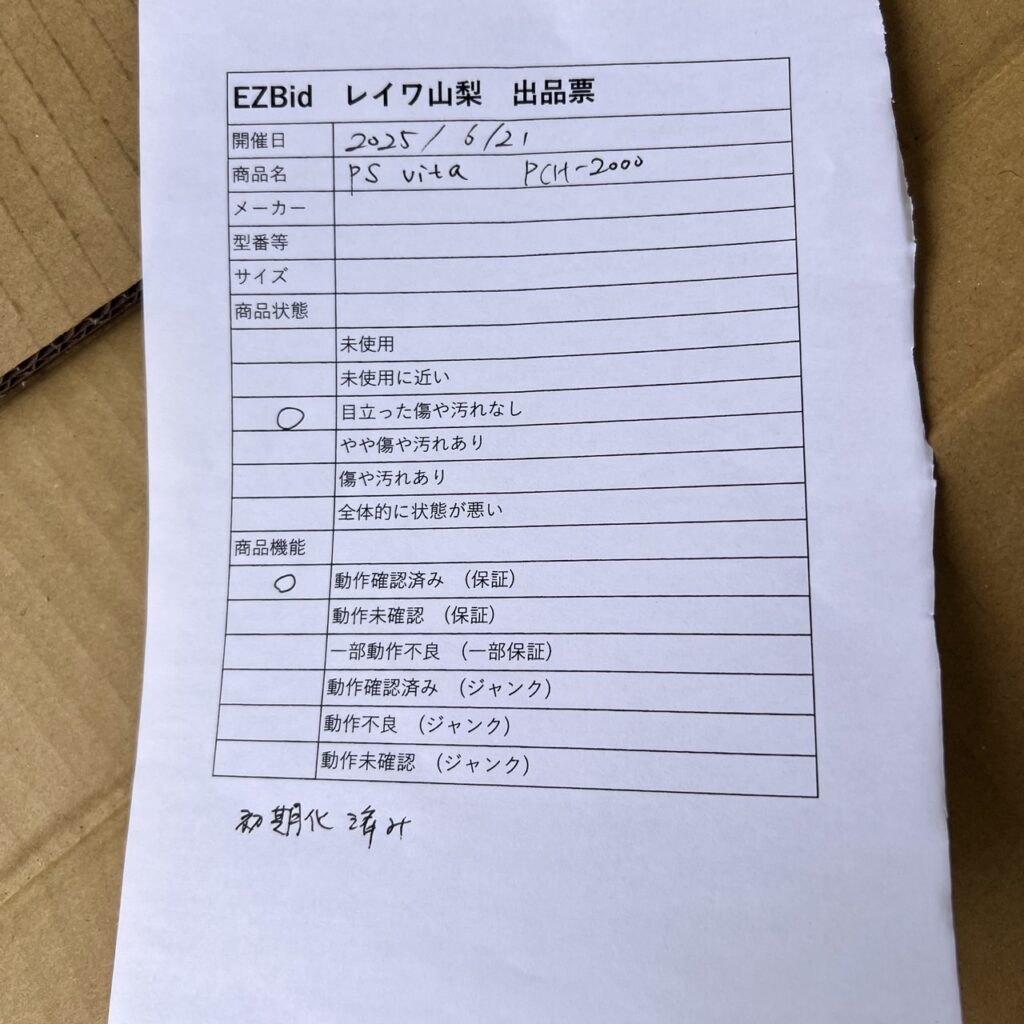 EZBid レイワ山梨 出品票
開催日 2025/6/21
商品名 PS vita PCH-2000
メーカー
型番等
サイズ
商品状態
未使用
未使用に近い
○ 目立った傷や汚れなし
やや傷や汚れあり
傷や汚れあり
全体的に状態が悪い
商品機能
○ 動作確認済み (保証)
動作未確認 (保証)
一部動作不良 (一部保証)
動作確認済み (ジャンク)
動作不良 (ジャンク)
動作未確認 (ジャンク)
初期化済み